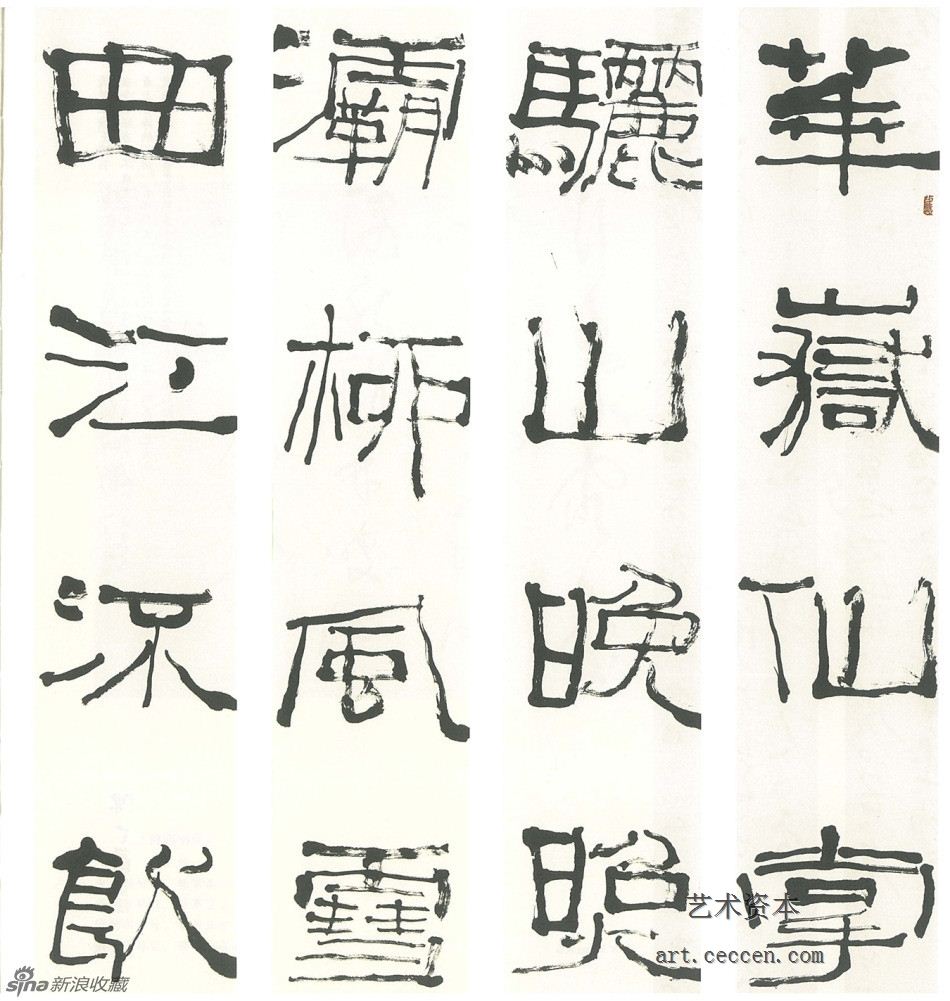 華嶽仙掌
驪山晚晚
灞柳風雪
曲江流飲
艺术资本
art.ceccen.com
sina新浪收藏